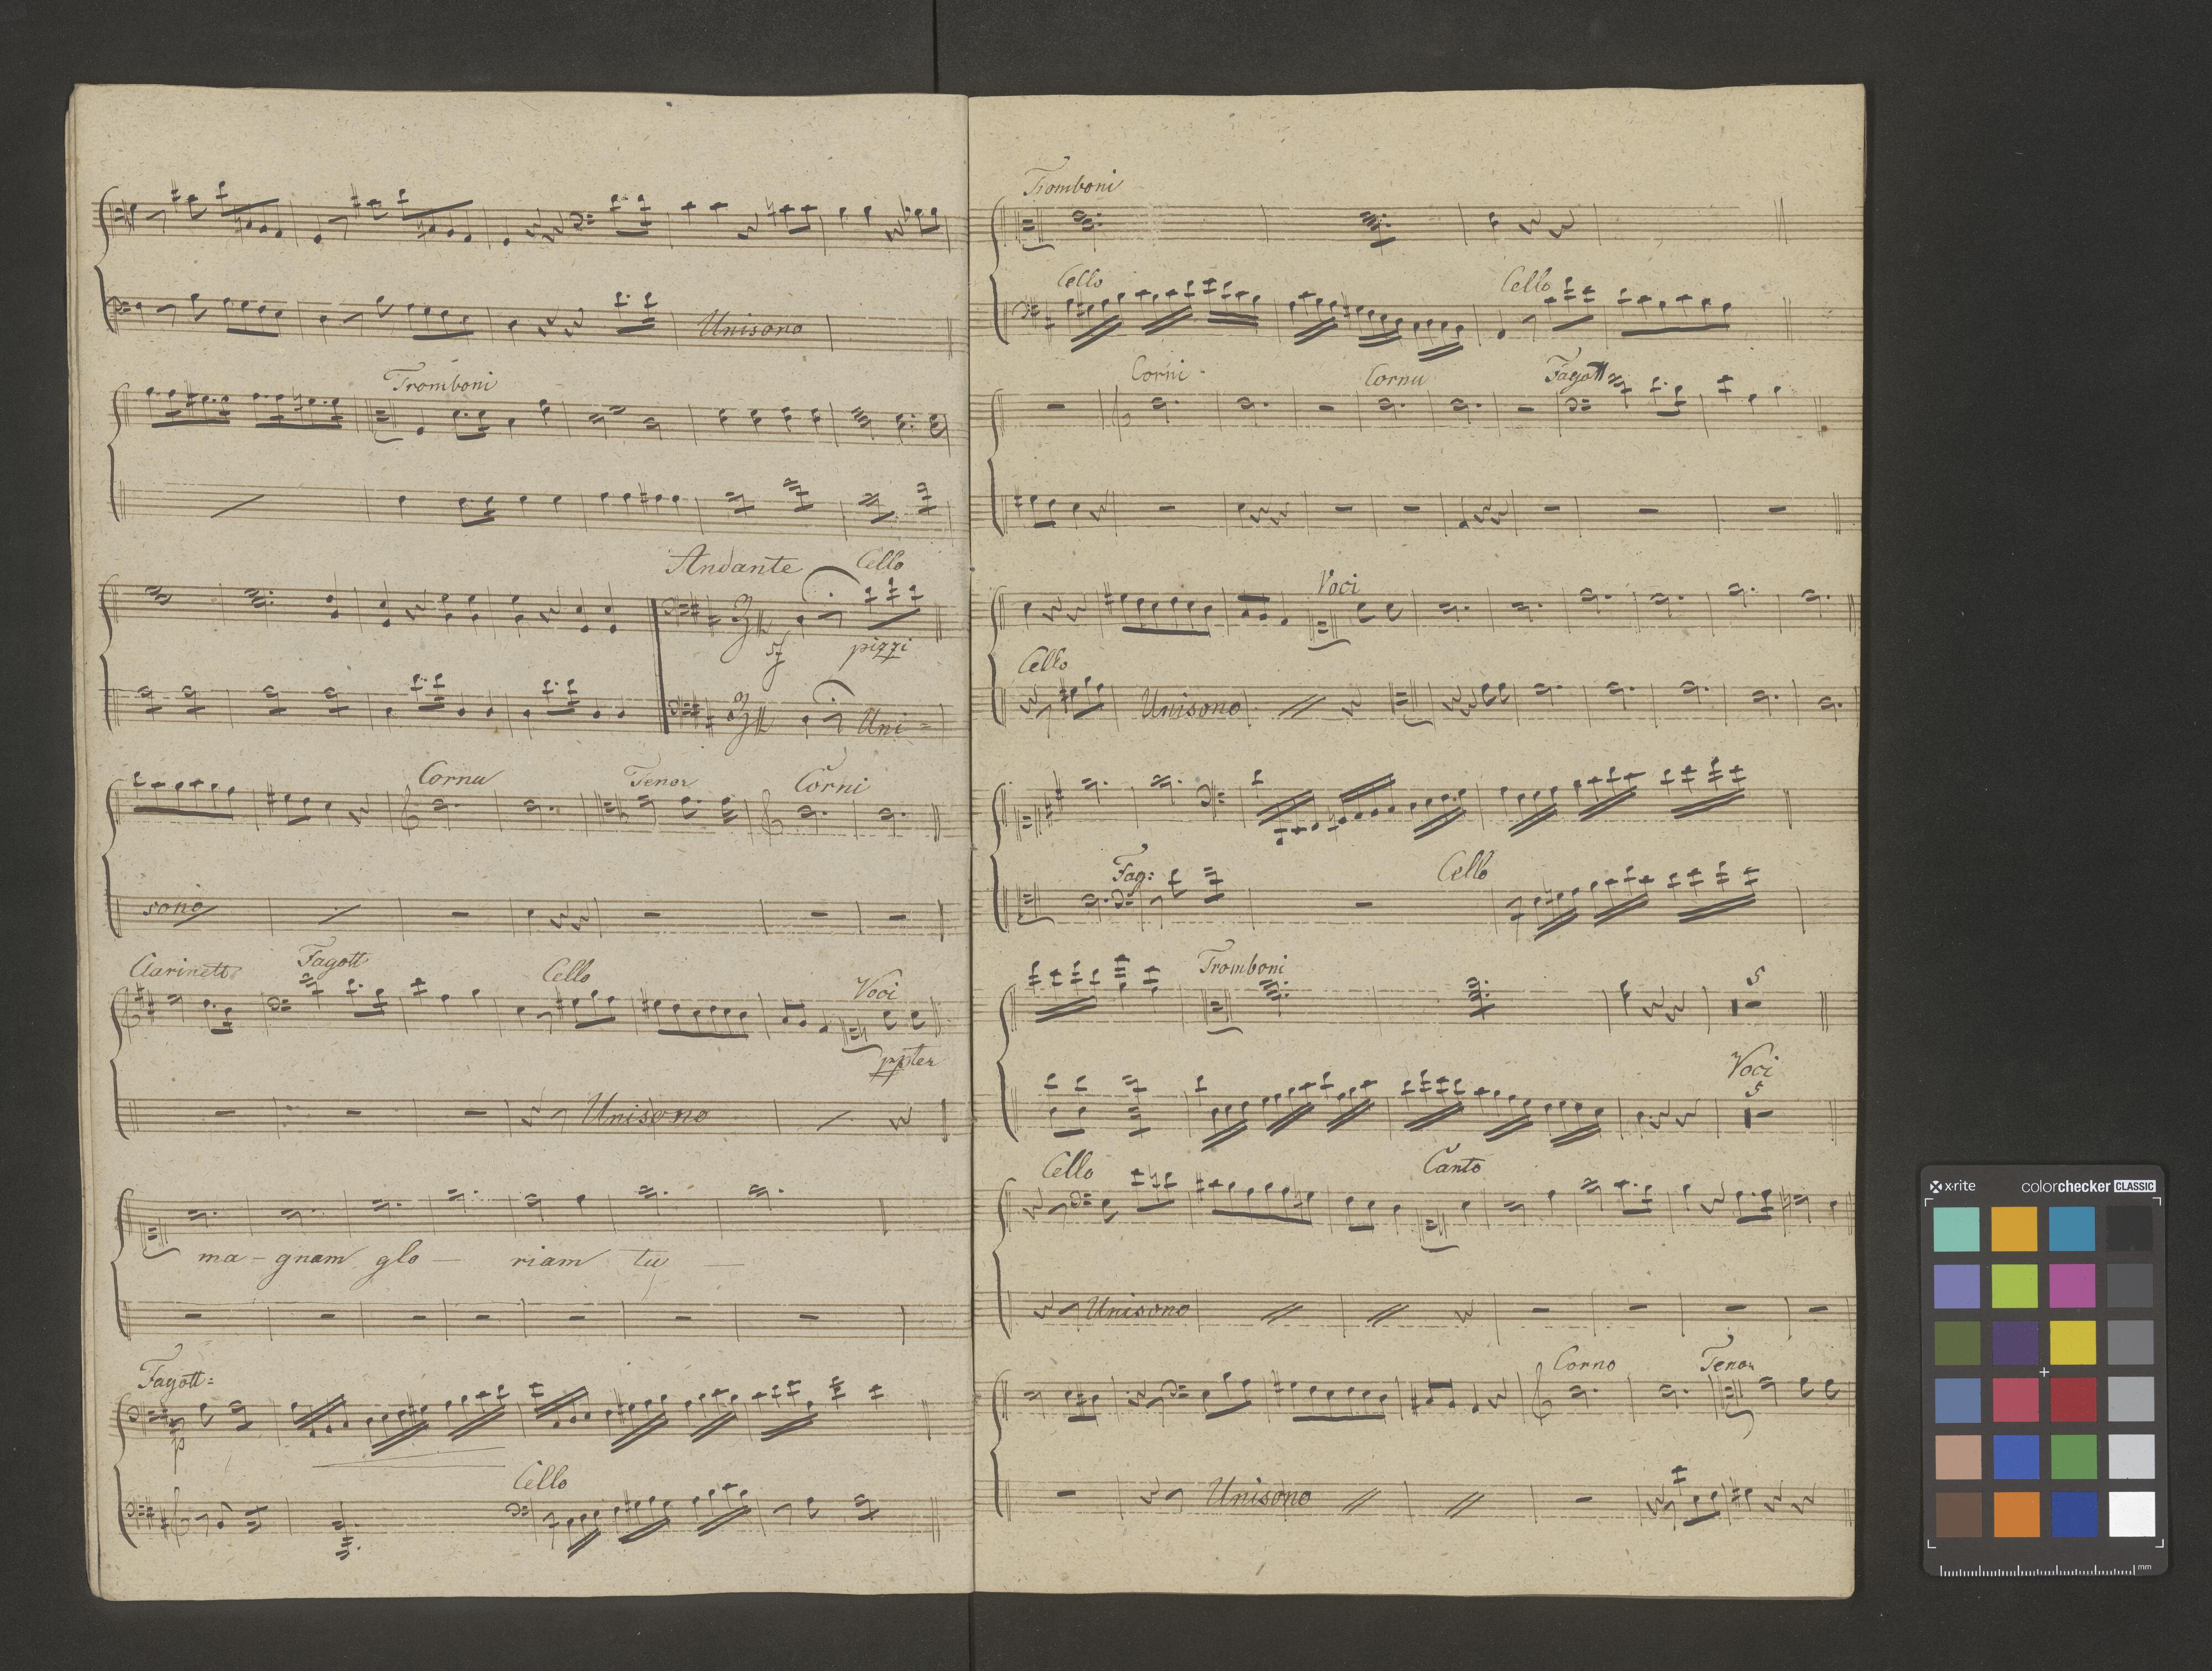 Unisono
Tromboni
Andante Cello
sf pizzi
Uni=
Cornu Tenor Corni
sono
Clarinett: Fagott Cello Voci
ppter
Unisono
ma-gnam glo- riam tu -
Fagott:
p
Cello
Tromboni
Cello Cello
Corni Cornu Fagott
Voci
Cello
Unisono
Fag: Cello
Tromboni 5
Voci
5
Cello Canto
Unisono
Corno Tenor
Unisono
x-rite colorchecker CLASSIC
mm